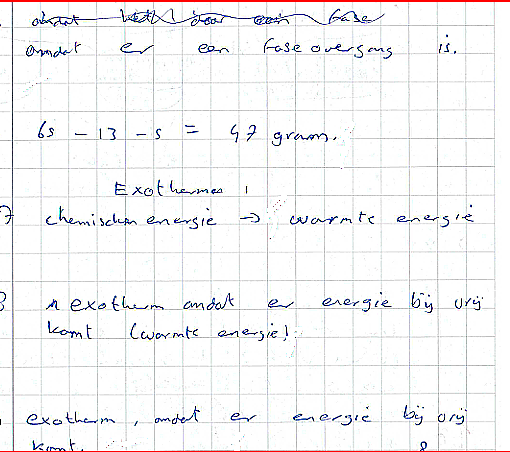 omdat er een fase overgang is.
65 - 13 - 5 = 47 gram.
Exotherme
chemischen energie → warmte energie
exotherm omdat er energie bij vrij
komt (warmte energie).
exotherm, omdat er energie bij vrij
komt.